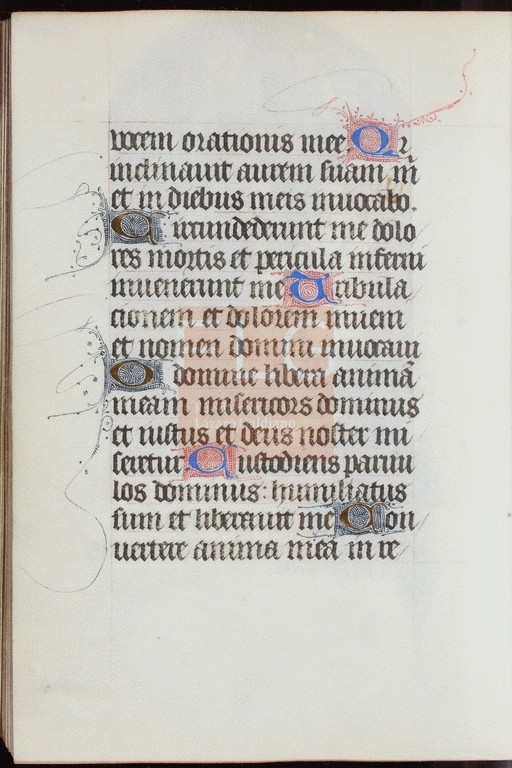 vocem orationis mee Qr
inclinauit aurem suam m̄
et in diebus meis inuocabo.
Circundederunt me dolo
res mortis et pericula inferni
inuenerunt me Tribula
cionem et dolorem inueni
et nomen domini inuocaui
O domine libera animā
meam misericors dominus
et iustus et deus noster mi
seretur Custodiens paruu
los dominus: humiliatus
sum et liberauit me Con
uertere anima mea in re